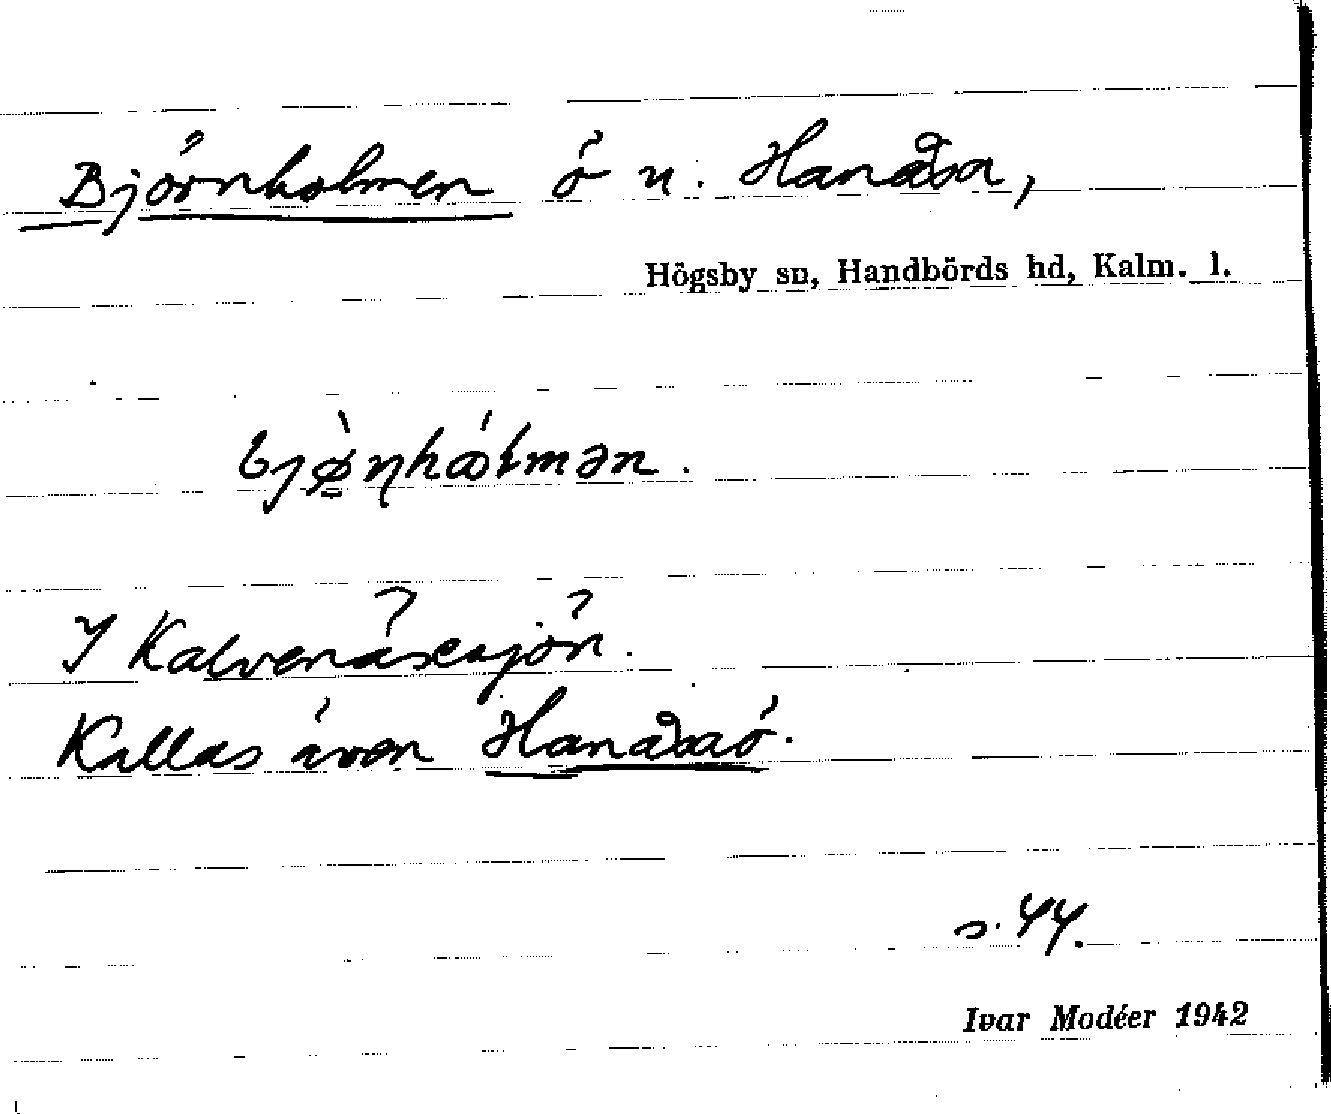 Björnholmen ö u. Hanåsa,
Högsby sn, Handbörds hd, Kalm. l.
I Kalvenäsesjön.
Kallas även Hanåsaö.
s. 44.
Ivar Modéer 1942